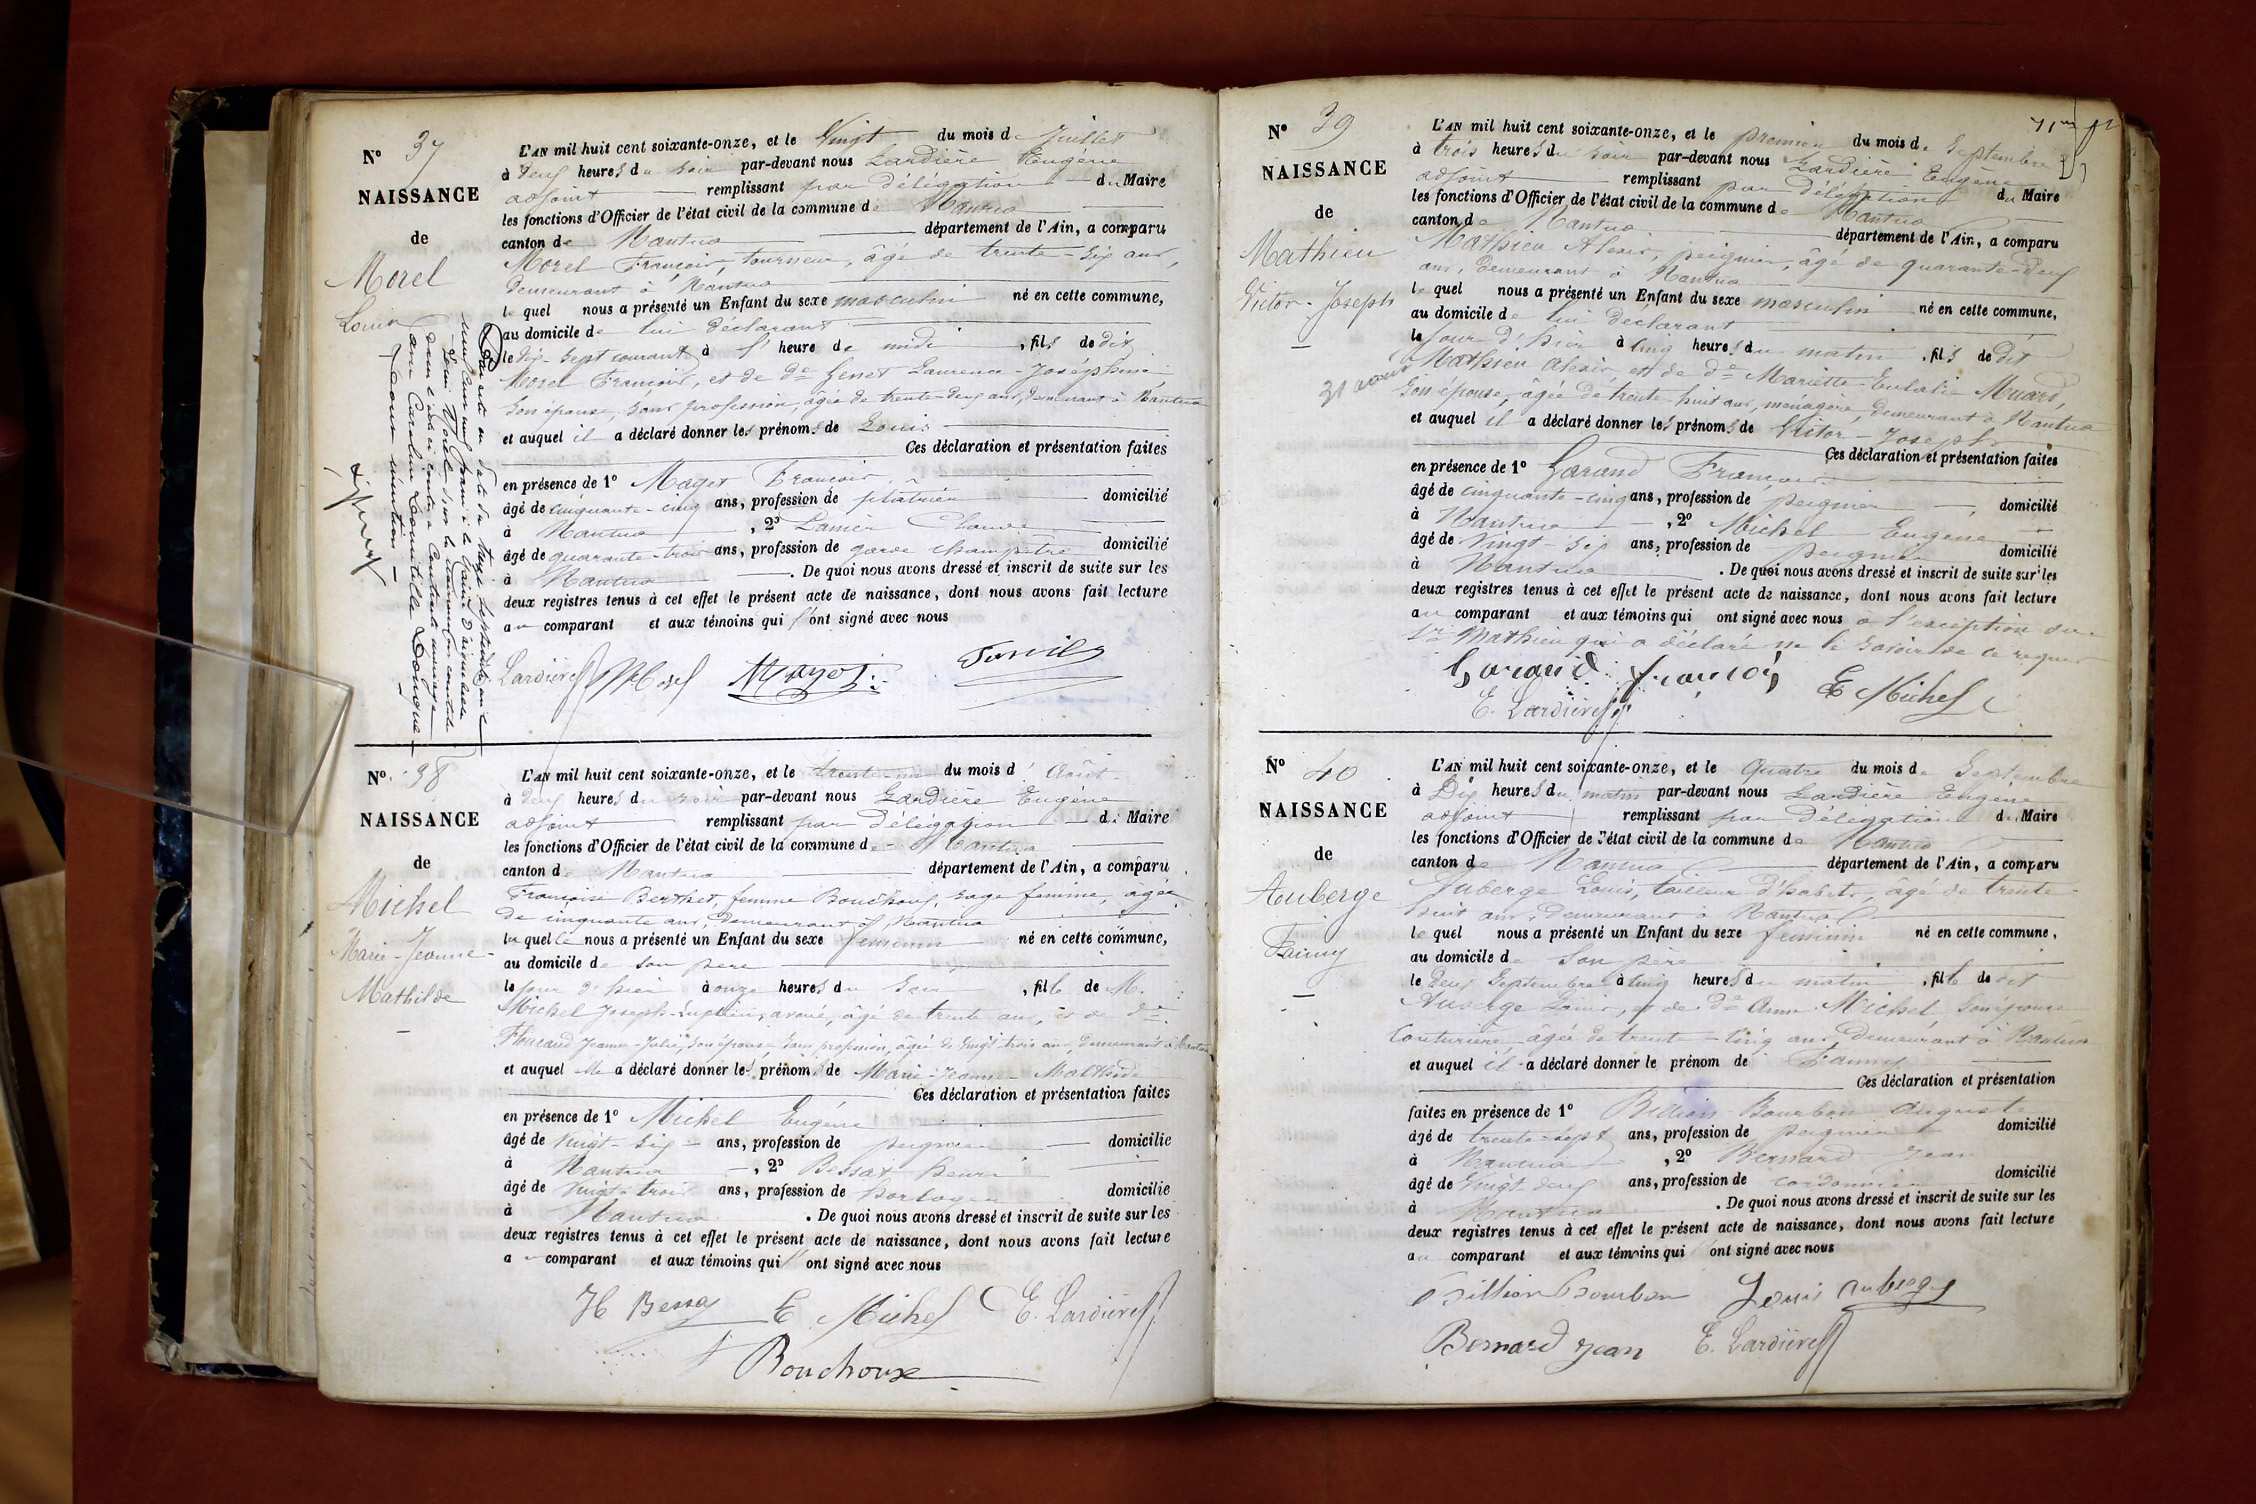 N° 37
NAISSANCE
de
Morel
Louis
L'AN mil huit cent soixante-onze, et le Vingt du mois de Juillet
à deux heures du soir par-devant nous Lardière Eugène
adjoint remplissant par délégation du Maire
les fonctions d'Officier de l'état civil de la commune de Nantua
canton de Nantua département de l'Ain, a comparu
Morel François, tourneur, âgé de trente-six ans,
demeurant à Nantua
le quel nous a présenté un Enfant du sexe masculin né en cette commune,
au domicile de lui déclarant
le dix-sept courant à l' heure de midi, fils de dit
Morel François, et de de Genet Laurence-Joséphine
son épouse, sans profession, âgée de trente-deux ans, demeurant à Nantua
et auquel il a déclaré donner les prénoms de Louis
Ces déclaration et présentation faites
en présence de 1° Mayet François
âgé de cinquante-cinq ans, profession de platrier domicilié
à Nantua, 2° Claude
âgé de quarante-trois ans, profession de garde champêtre domicilié
à Nantua. De quoi nous avons dressé et inscrit de suite sur les
deux registres tenus à cet effet le présent acte de naissance, dont nous avons fait lecture
au comparant et aux témoins qui l'ont signé avec nous
Lardière Morel Mayet
N° 38
NAISSANCE
de
Michel
Marie-Jeanne-
Mathilde
L'AN mil huit cent soixante-onze, et le trente-un du mois d'Août
à deux heures du soir par-devant nous Lardière Eugène
adjoint remplissant par délégation du Maire
les fonctions d'Officier de l'état civil de la commune de Nantua
canton de Nantua département de l'Ain, a comparu
Françoise Berthet, femme Bouchoux, sage femme, âgée
de cinquante ans, demeurant à Nantua
la quelle nous a présenté un Enfant du sexe féminin né en cette commune,
au domicile de son père
le jour d'hier à onze heures du soir, fille de M.
Michel Joseph, avoué, âgé de trente ans, et de de
Jeanne-Julie, son épouse, sans profession, âgée de vingt-trois ans, demeurant à Nantua
et auquel elle a déclaré donner les prénoms de Marie-Jeanne-Mathilde
Ces déclaration et présentation faites
en présence de 1° Michel Eugène
âgé de vingt-six ans, profession de peignier domicilié
à Nantua, 2° Bessat Henri
âgé de vingt-trois ans, profession de horloger domicilié
à Nantua. De quoi nous avons dressé et inscrit de suite sur les
deux registres tenus à cet effet le présent acte de naissance, dont nous avons fait lecture
a comparant et aux témoins qui l'ont signé avec nous
H Bessat E. Michel E. Lardière
Bouchoux
N° 39
NAISSANCE
de
Mathieu
Victor-Joseph
31 août
L'AN mil huit cent soixante-onze, et le premier du mois de Septembre
à trois heures du soir par-devant nous Lardière Eugène
adjoint remplissant par délégation du Maire
les fonctions d'Officier de l'état civil de la commune de Nantua
canton de Nantua département de l'Ain, a comparu
Mathieu Alexis, peignier, âgé de quarante-deux
ans, demeurant à Nantua
le quel nous a présenté un Enfant du sexe masculin né en cette commune,
au domicile de lui déclarant
le jour d'hier à cinq heures du matin, fils de dit
Mathieu Alexis, et de de Mariette-Eulalie
son épouse, âgée de trente-huit ans, ménagère, demeurant à Nantua
et auquel il a déclaré donner les prénoms de Victor-Joseph
Ces déclaration et présentation faites
en présence de 1° Garand François
âgé de cinquante-cinq ans, profession de peignier domicilié
à Nantua, 2° Michel Eugène
âgé de Vingt-six ans, profession de peignier domicilié
à Nantua. De quoi nous avons dressé et inscrit de suite sur les
deux registres tenus à cet effet le présent acte de naissance, dont nous avons fait lecture
au comparant et aux témoins qui ont signé avec nous à l'exception du
Sr Mathieu qui a déclaré ne le savoir de ce requis
Garand françois E Michel
E. Lardière
N° 40
NAISSANCE
de
Auberge
Fanny
L'AN mil huit cent soixante-onze, et le Quatre du mois de Septembre
à Dix heures du matin par-devant nous Lardière Eugène
adjoint remplissant par délégation du Maire
les fonctions d'Officier de l'état civil de la commune de Nantua
canton de Nantua département de l'Ain, a comparu
Auberge Louis, tailleur d'habits, âgé de trente-
huit ans, demeurant à Nantua
le quel nous a présenté un Enfant du sexe féminin né en cette commune,
au domicile de son père
le deux Septembre à cinq heures du matin, fille de dit
Auberge Louis, et de de Anne Michel, son épouse
couturière, âgée de trente-cinq ans, demeurant à Nantua
et auquel il a déclaré donner le prénom de Fanny
Ces déclaration et présentation
faites en présence de 1° Billion Bourbon Auguste
âgé de trente-sept ans, profession de peignier domicilié
à Nantua, 2° Bernard Jean
âgé de Vingt-deux ans, profession de cordonnier domicilié
à Nantua. De quoi nous avons dressé et inscrit de suite sur les
deux registres tenus à cet effet le présent acte de naissance, dont nous avons fait lecture
au comparant et aux témoins qui ont signé avec nous
Billion Bourbon Louis auberge
Bernard jean E. Lardière